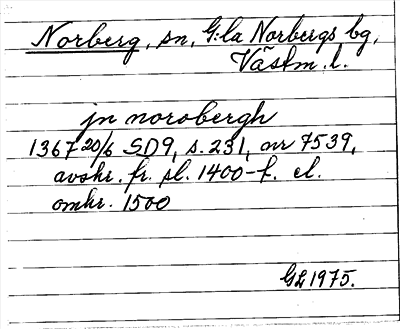 Norberg, sn, G:la Norbergs bg,
Västm. l.
jn norobergh
1367 20/6 SD9, s. 231, nr 7539,
avskr. fr. sl. 1400-t. el.
omkr. 1500
GL 1975.